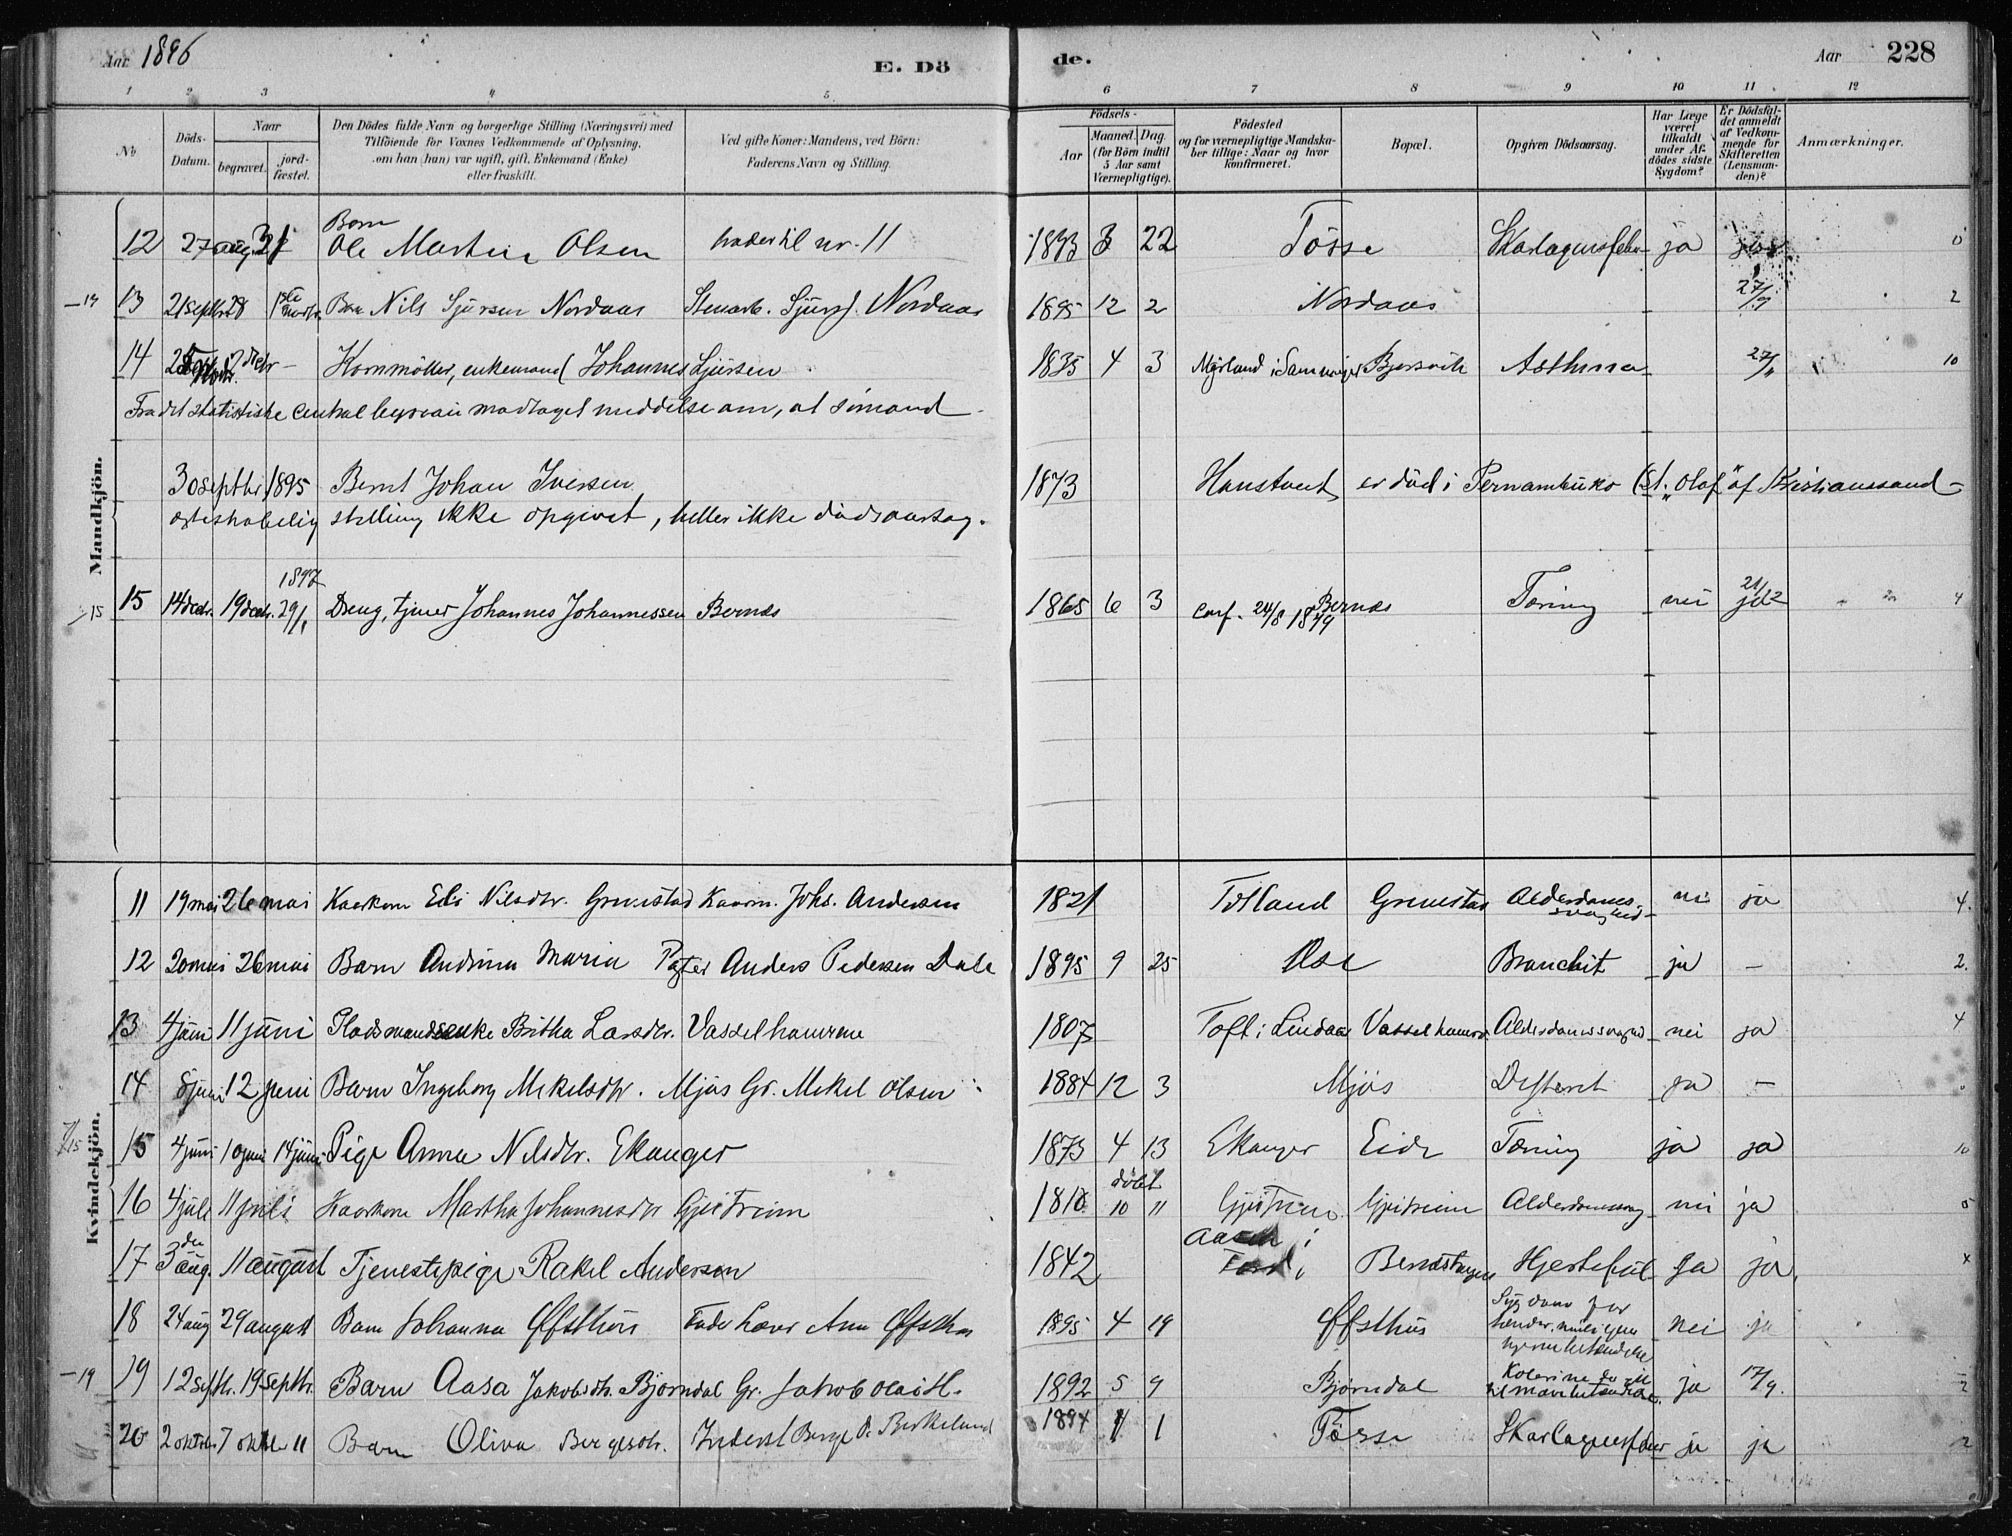 Aar 1896
E. Dö de.
Aar 228
1 2 3 4 5 6 7 8 9 10 11 12
No
Döds-Datum.
Naar begravet. jordfæstet.
Den Dödes fulde Navn og borgerlige Stilling (Næringsvei) med Tilföiende for Voxnes Vedkommende af Oplysning, om han (hun) var ugift, gift, Enkemand (Enke) eller fraskilt.
Ved gifte Koner: Mandens, ved Börn: Faderens Navn og Stilling.
Födsels-
Aar
Maaned. Dag. (for Börn indtil 5 Aar samt Værnepligtige).
Födested og for værnepligtige Mandskaber tillige: Naar og hvor konfirmeret.
Bopæl.
Opgiven Dödsaarsag.
Har Læge været tilkaldt under Afdödes sidste Sygdom?
Er Dödsfaldet anmeldt af Vedkommende for Skifteretten (Lensmanden)?
Anmærkninger.
Mandkjön.
12 27 aug. 31 Barn Ole Martin Olsen broder til nr. 11 1893 3 22 Tösse Skarlagensfeber ja
13 21 septbr 28 Barn Nils Sjursen Nordaas Stenarb. Sjur J. Nordaas 1895 12 2 Nordaas 27/9 2
14 Kornmöller, enkemand Johannes Sjursen 1835 4 3 Bjorsvik Asthma 27/11 10
Fra det statistiske centralbyrean modtaget meddelse om, at sömand
30 septbr. 1895 Bernt Johan Iversen 1873 Hanstveit er död i Pernambuko (st. "Olaf" af Kristianssand
ægteskabelig stilling ikke opgivet, heller ikke dödsaarsag.
15 15 14 decbr. 19 decbr. 1897 29/1 Dreng, tjener Johannes Johannessen Bernæs 1865 6 3 Bernæs conf. 24/8 1879 Tæring nei 21/12 4
Kvindekjön.
11 19 mai 26 mai Kaarkone Eli Nilsdtr. Grimstad Kaarm. Johs. Andersen 1821 Totland Grimstad Alderdomssvaghed nei ja 4.
12 20 mai 26 mai Barn Andrina Maria Pter Anders Pedersen Dale 1895 9 25 Branchit ja – 2.
13 4 juni 11 juni Pladsmandsenke Britha Larsdtr. Vasselhammeren 1807 Toft i Lindaas Vasselhammer Alderdomssvaghed nei ja 4
14 8 juni 12 juni Barn Ingeborg Mikelsdtr. Mjös Gr. Mikel Olsen 1884 12 3 Mjös Difterit ja –
15 15 4 juni 10 juni 14 juni Pige Anna Nilsdtr. Ekanger 1873 4 13 Ekanger Eide Tæring ja ja 10
16 4 juli 11 juli Kaarkone Martha Johannesdtr Gjeitreim 1810 döbt 10 11 Gjeitreim Gjeitreim Alderdomssvag nei ja 5
17 3 die aug. 11 august Tjenestepige Rakel Andersen 1842 Hjertefeil ja ja.
18 24 aug 29 august Barn Johanna Öfsthus 1895 4 19 Öfsthus nei ja
19 19 12 septbr. 19 septbr. Barn Aasa Jakobsdtr. Björndal Gr. Jakob 1892 5 9 Björndal ja 17/9. 2
20 2 oktbr. 7 oktbr 11 Barn Oliva Bergesdtr. Inderst Berge O. Birkeland 1894 1 Tösse Skarlagensfeber ja ja 2